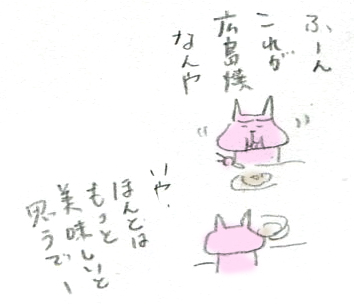 ふーん
これが
広島焼
なんや
いや、
ほんとは
もっと
美味しいと
思うでー